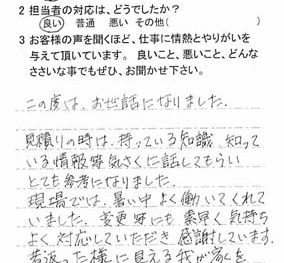 2 担当者の対応は、どうでしたか?
良い 普通 悪い その他(
3 お客様の声を聞くほど、仕事に情熱とやりがいを
与えて頂いています。 良いこと、悪いこと、どんな
ささいな事でもぜひ、お聞かせ下さい。
この度は、お世話になりました。
見積りの時は、持っている知識、知って
いる情報等気さくに話してもらい
とても参考になりました。
現場では、暑い中よく働いてくれて
いました。変更等にも素早く気持ち
よく対応していただき感謝しています。
若返った様に見える我が家を